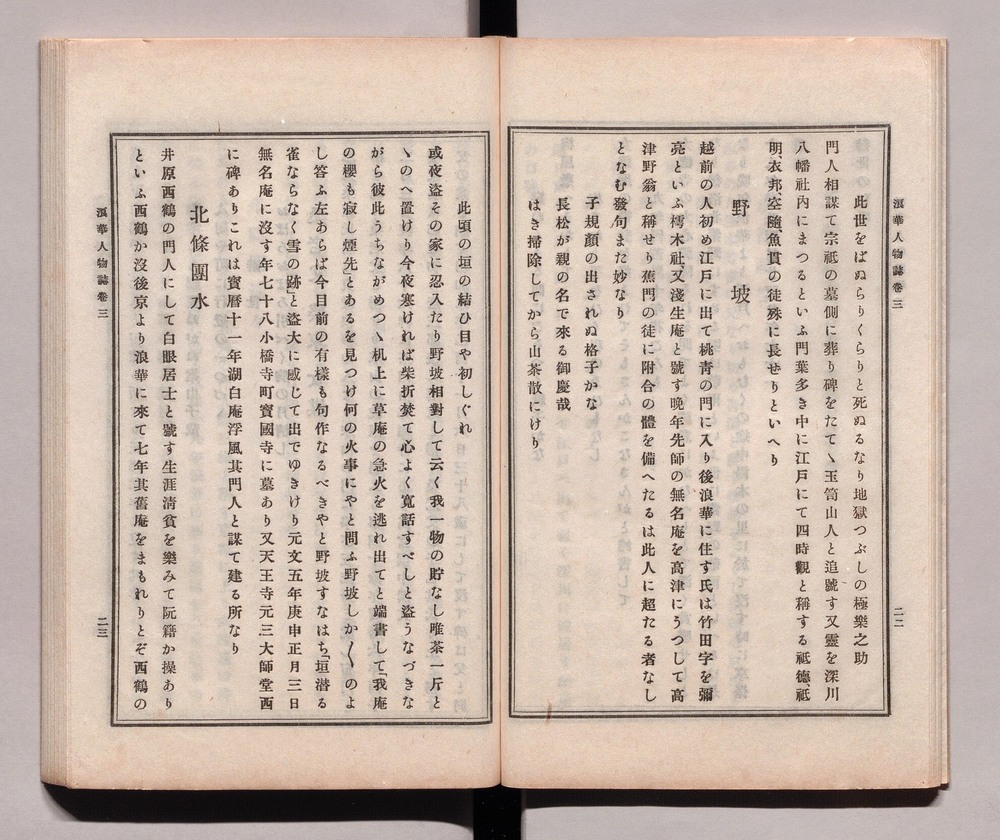 浪華人物誌卷三
二二
此世をばぬらりくらりと死ぬるなり地獄つぶしの極樂之助
門人相謀て宗祇の墓側に葬り碑をたてゝ玉笥山人と追號す又靈を深川
八幡社内にまつるといふ門葉多き中に江戸にて四時觀と稱する祗德、祗
明、衣邦、空隨、魚貫の徒殊に長せりといへり
野坡
越前の人初め江戸に出て桃靑の門に入り後浪華に住す氏は竹田字を彌
亮といふ樗木社又淺生庵と號す晩年先師の無名庵を高津にうつして高
津野翁と稱せり蕉門の徒に附合の體を備へたるは此人に超たる者なし
となむ發句また妙なり
子規顏の出されぬ格子かな
長松が親の名で來る御慶哉
はき掃除してから山茶散にけり
此頃の垣の結ひ目や初しぐれ
或夜盜その家に忍入たり野坡相對して云く我一物の貯なし唯茶一斤と
ゝのへ置けり今夜寒ければ柴折焚て心よく寬話すべしと盜うなづきな
がら彼此うちながめつゝ机上に草庵の急火を逃れ出てと端書して「我庵
の櫻も寂し煙先」とあるを見つけ何の火事にやと問ふ野坡しか〱のよ
し答ふ左あらば今日前の有樣も句作なるべきやと野坡すなはち「垣潜る
雀ならなく雪の跡」と盜大に感じて出でゆきけり元文五年庚申正月三日
無名庵に沒す年七十八小橋寺町寳國寺に墓あり又天王寺元三大師堂西
に碑ありこれは寳曆十一年湖白庵浮風其門人と謀て建る所なり
北條團水
井原西鶴の門人にして白眼居士と號す生涯淸貧を樂みて阮籍か操あり
といふ西鶴か沒後京より浪華に來て七年其舊庵をまもれりとぞ西鶴の
浪華人物誌卷三
二三